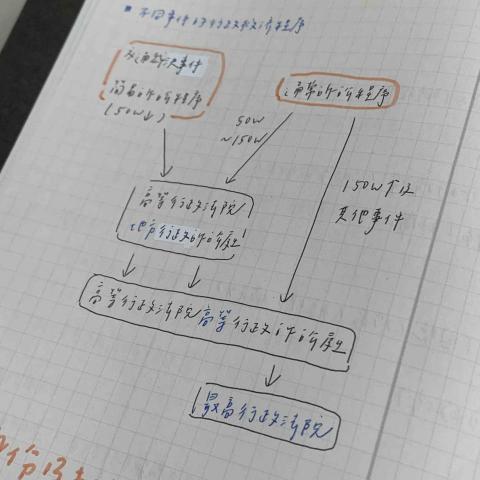 ■ 不同事件的行政救濟程序
交通裁決事件
簡易訴訟程序
(50W↓)
通常訴訟程序
50W
~150W
150W↑及
其他事件
高等行政法院
地方行政訴訟庭
高等行政法院高等行政訴訟庭
最高行政法院